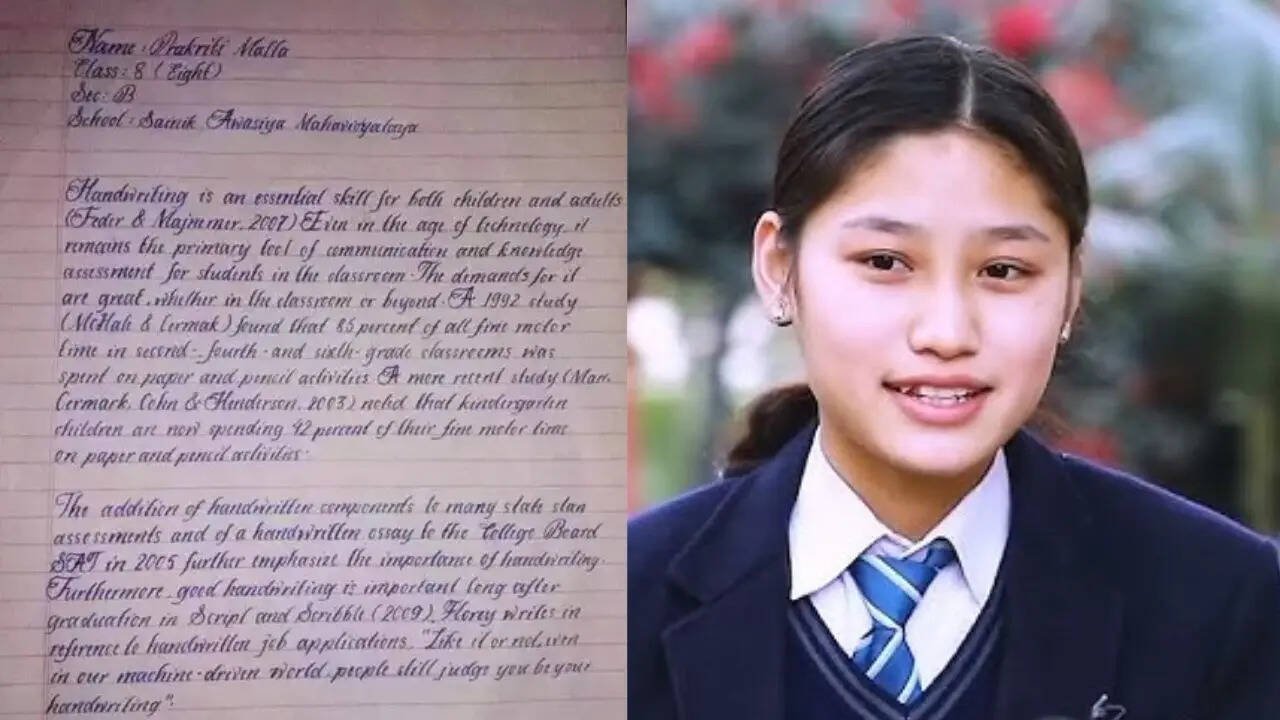 Name : Prakriti Malla
Class : 8 ( Eight )
Sec : B
School : Sainik Awasiya Mahavidyalaya
Handwriting is an essential skill for both children and adults
(Feder & Majnemer, 2007) Even in the age of technology, it
remains the primary tool of communication and knowledge
assessment for students in the classroom. The demands for it
are great, whether in the classroom or beyond. A 1992 study
(McHale & Cermak) found that 85 percent of all fine motor
time in second-, fourth- and sixth-grade classrooms was
spent on paper and pencil activities. A more recent study (Marr,
Cermark, Cohn & Henderson, 2003) noted that kindergarten
children are now spending 42 percent of their fine motor time
on paper and pencil activities.
The addition of handwritten components to many state stan
assessments and of a handwritten essay to the College Board
SAT in 2005 further emphasize the importance of handwriting.
Furthermore, good handwriting is important long after
graduation in Script and Scribble (2009), Florey writes in
reference to handwritten job applications, "Like it or not, even
in our machine-driven world, people still judge you be your
handwriting".